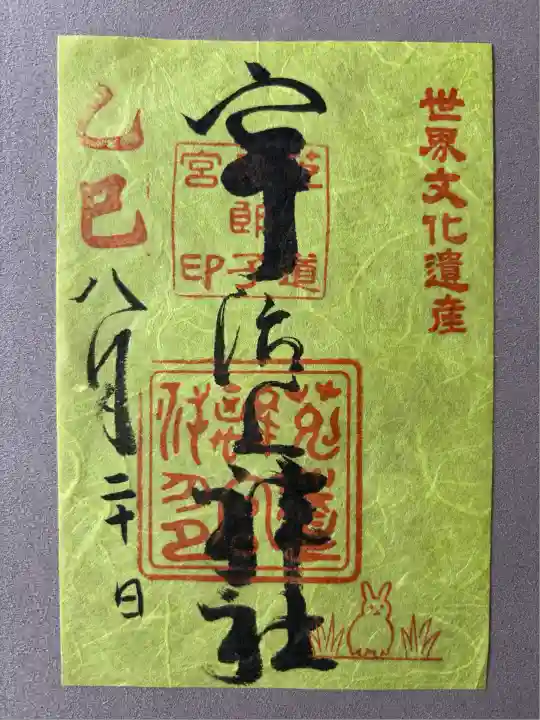 世界文化遺産
宇治上神社
道
郎子
宮印
乙巳
八月二十日